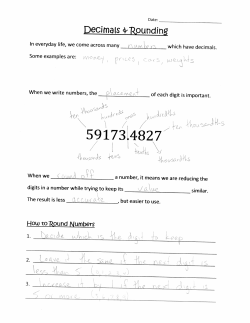 Date:
Decimals & Rounding
In everyday life, we come across many numbers which have decimals.
Some examples are: money, prices, cars, weights
When we write numbers, the placement of each digit is important.
ten thousands hundreds ones hundredths ten thousandths
59173.4827
thousands tens tenths thousandths
When we round off a number, it means we are reducing the
digits in a number while trying to keep its value similar.
The result is less accurate, but easier to use.
How to Round Numbers
1. Decide which is the digit to keep
2. Leave it the same if the next digit is
less than 5
3. Increase it by 1 if the next digit is
5 or more